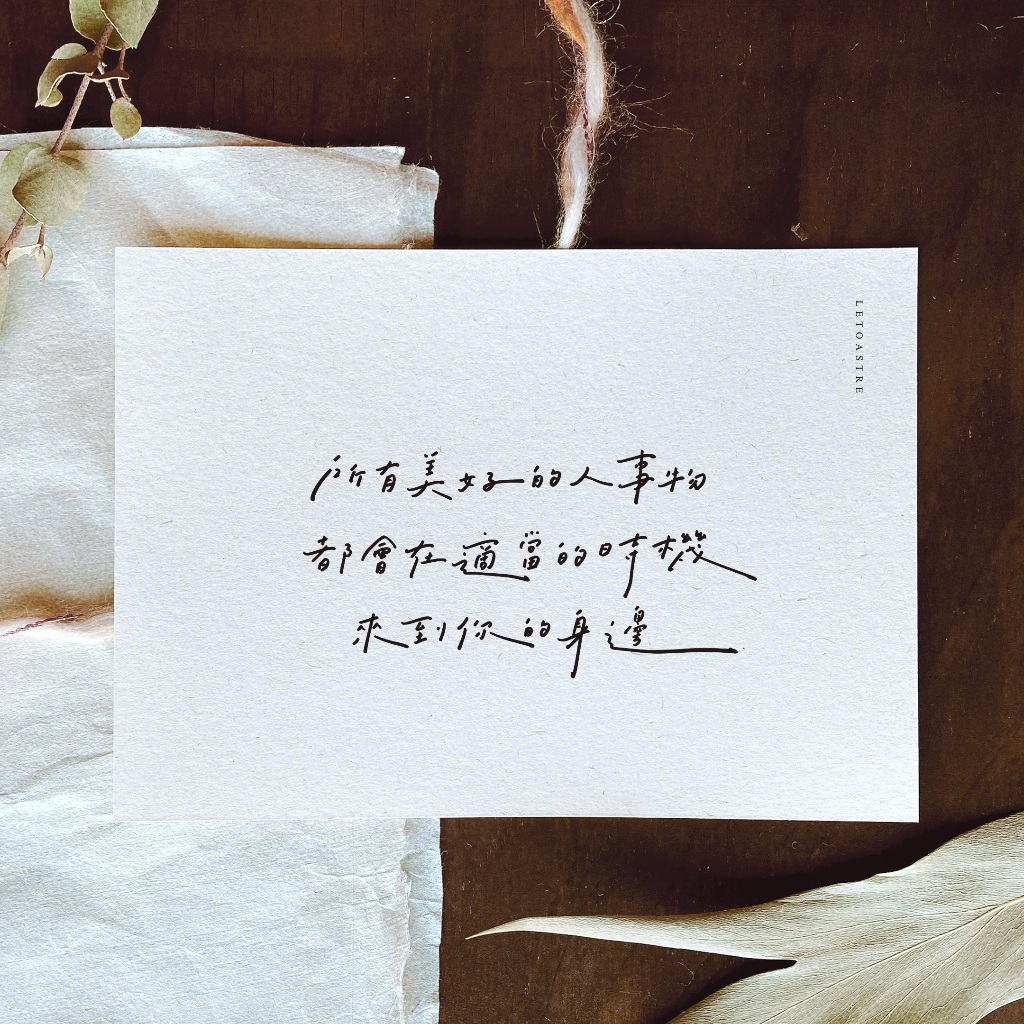 所有美好的人事物
都會在適當的時機
來到你的身邊
LETOASTRE